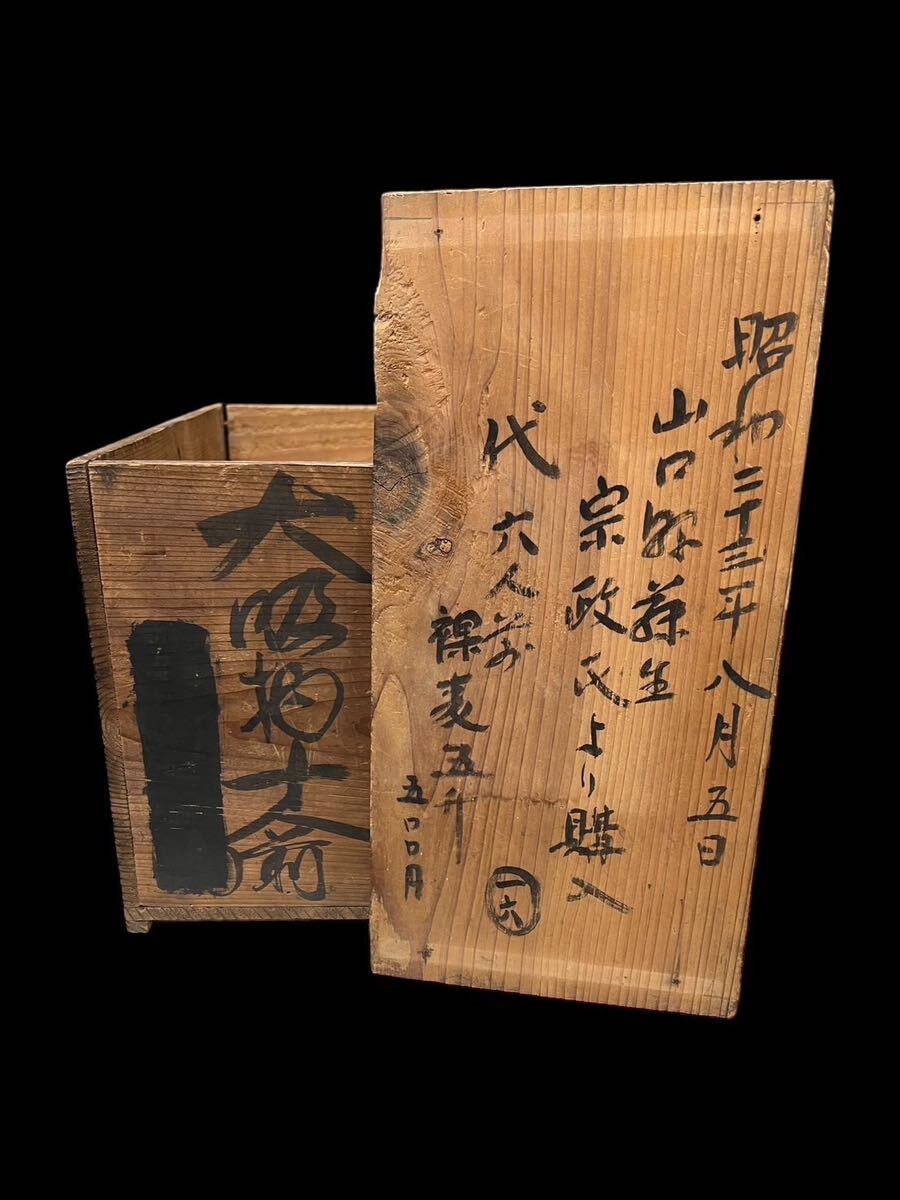 昭和二十三年八月五日
山口県麻生
宗政氏より購入
代六人前
裸麦五升
五〇〇円
一六
大吸物十人前